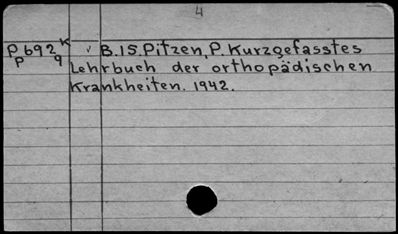 4
P692K B.15.Pitzen, P. Kurzgefasstes
P 9 Lehrbuch der orthopädischen
Krankheiten. 1942.